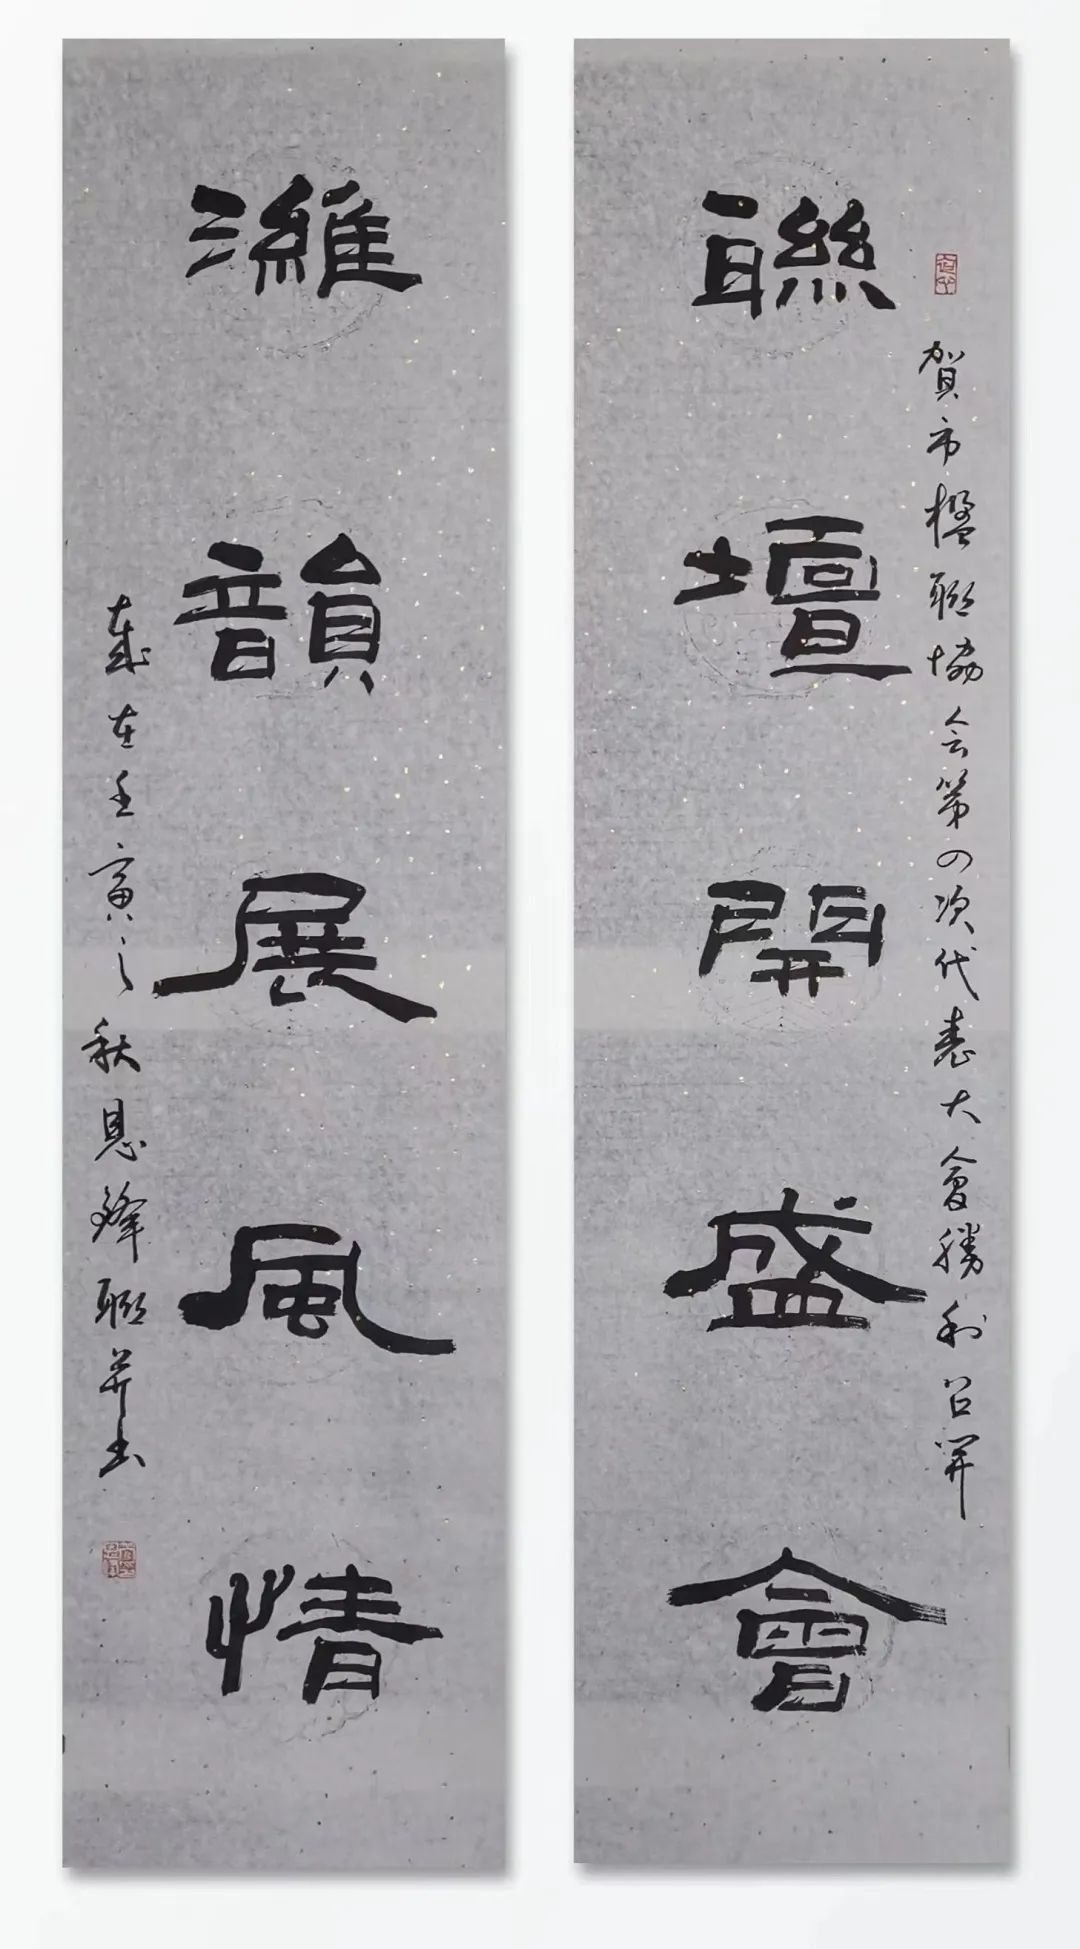 賀市楹聯協会第四次代表大會勝利召開
聯壇開盛會
濰韻展風情
歲在壬寅之秋恩鋒聯并书